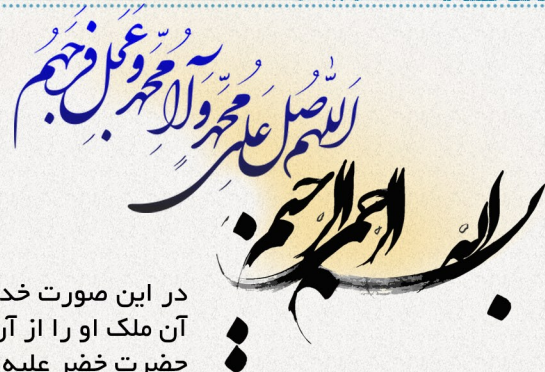 اللهم صل علی محمد و آل محمد و عجل فرجهم
بسم الله الرحمن الرحیم
در این صورت خد
آن ملک او را از آر
حضرت خضر علیه